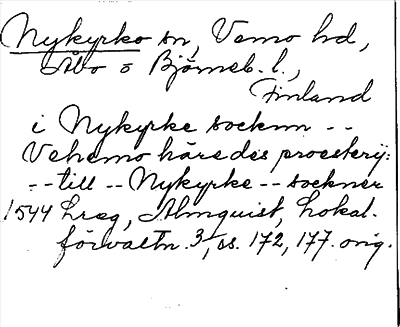 Nykyrko sn, Vemo hd,
Åbo o Björneb. l.,
Finland
i Nykyrke socknn --
Vehemo häredes proesterij:
-- till -- Nykyrke -- sockner
1544 hreg, Almquist, Lokal-
förvaltn. 3, ss. 172, 177. orig.